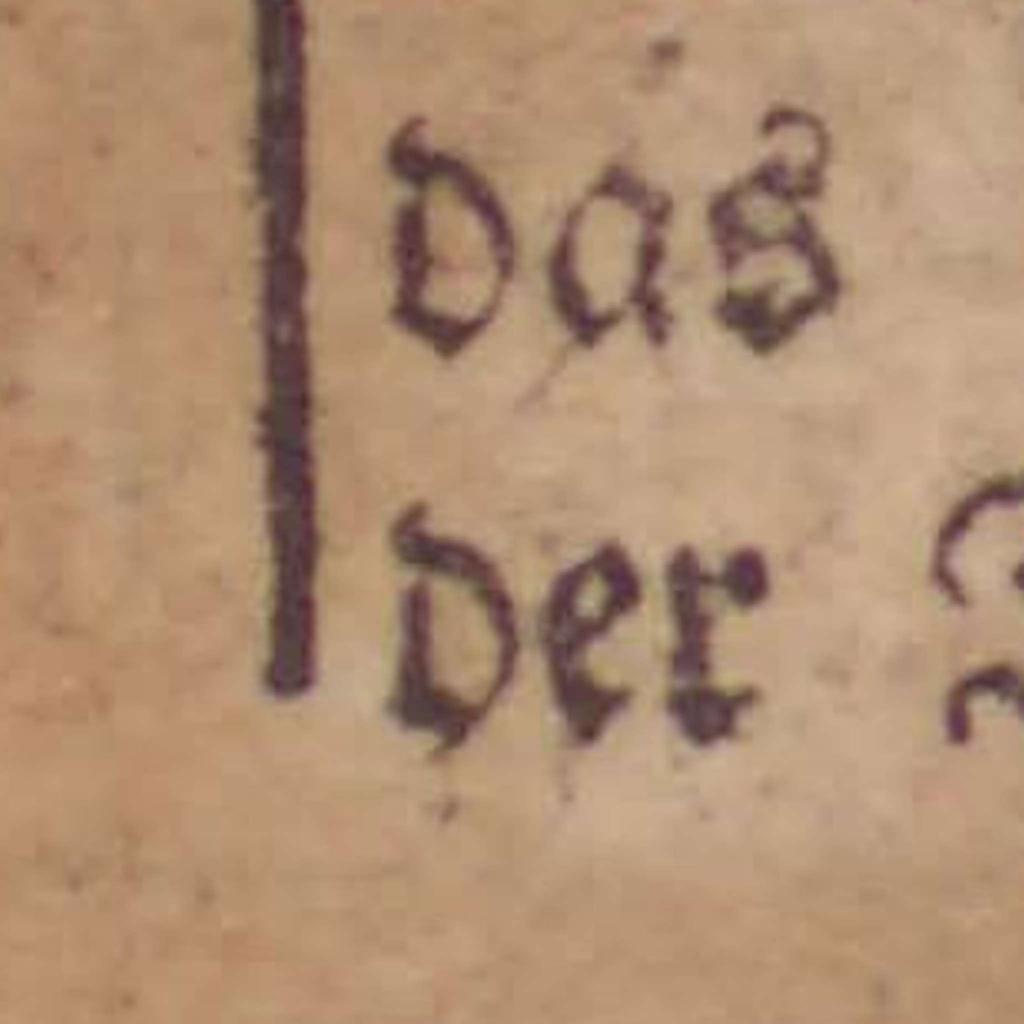 das
der